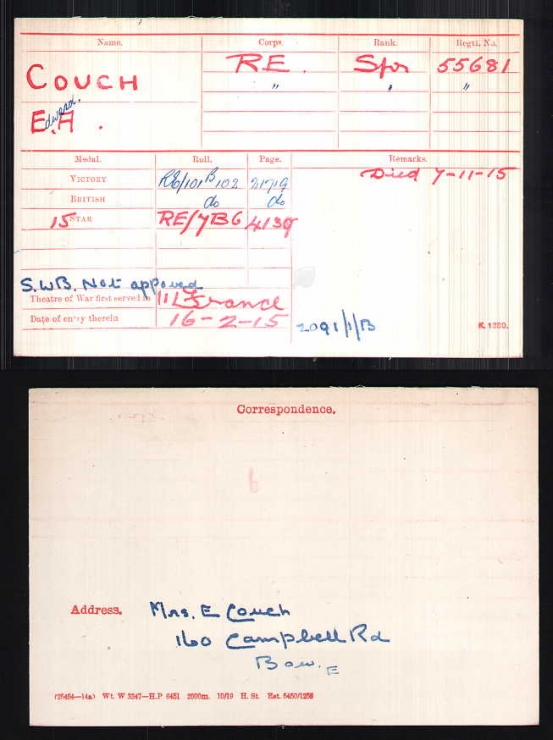 Name. Corps. Rank. Regtl. No.
COUCH RE. Spr 55681
Edward. " " "
E.A.
Medal. Roll. Page. Remarks.
VICTORY RE/101 B 102 21719 Died 7-11-15
BRITISH do do
15 STAR RE/7B6 4139
S.W.B. Not approved
Theatre of War first served in (1) France
Date of entry therein 16-2-15 2091/1/B K. 1380.
Correspondence.
Address. Mrs. E Couch
160 Campbell Rd
Bow. E
(26454—14a) Wt. W 3347—H.P 6451 2000m. 10/19 H. St. Est. 5450/1258